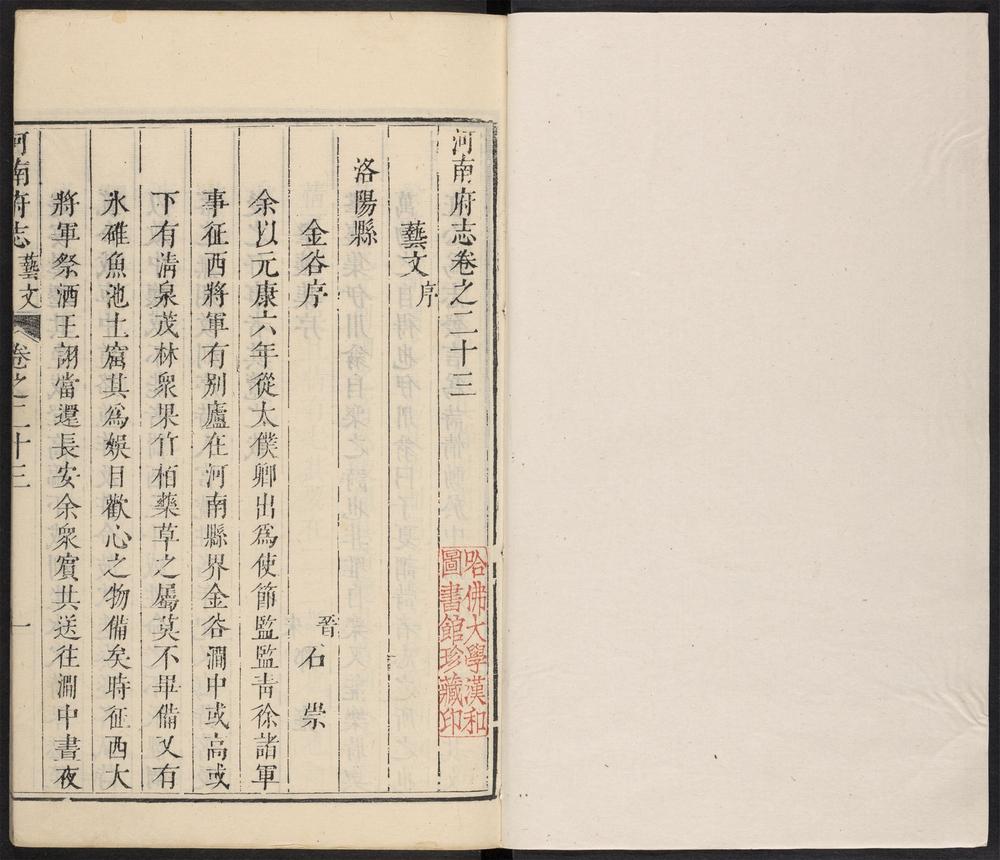 河南府志卷之二十三
藝文序
洛陽縣
金谷序
晉石崇
余以元康六年從太僕卿出爲使節監監靑徐諸軍
事征西將軍有別廬在河南縣界金谷澗中或高或
下有淸泉茂林衆果竹柏藥草之屬莫不畢備又有
水碓魚池土窟其爲娛目歡心之物備矣時征西大
將軍祭酒王詡當還長安余衆賓共送往澗中晝夜
河南府志 藝文 卷之二十三 一
哈佛大學漢和
圖書館珍藏印